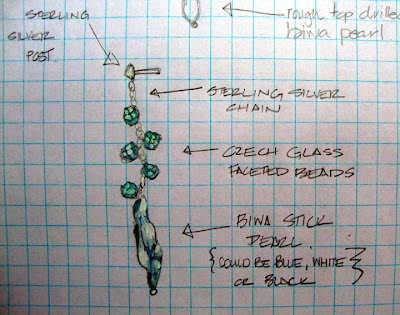 rough top drilled
biwa pearl
STERLING
SILVER
POST.
STERLING SILVER
CHAIN
CZECH GLASS
FACETED BEADS
BIWA STICK
PEARL.
{COULD BE BLUE, WHITE
OR BLACK}